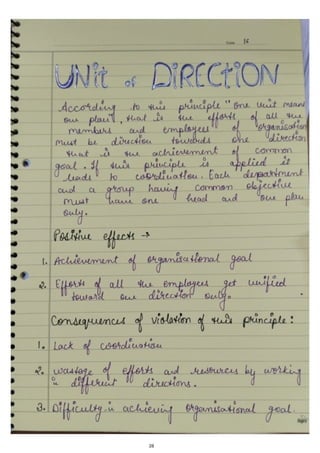 Date 16
UNit of DIRECtiON
According to this principle "one unit means
one plan", that is the efforts of all the
members and employees of organisation
must be direction towards one direction
that is the achievement of common
goal. If this principle is applied it
leads to coordination. Each department
and a group having common objective
must have one head and one plan
only.
Positive effects →
1. Achievement of organisational goal
2. Efforts of all the employees get unified
toward one direction only.
Consequences of violation of this principle:
1. Lack of coordination
2. wastage of efforts and resources by working
in different directions.
3. Difficulty in achieving organisational goal.
28